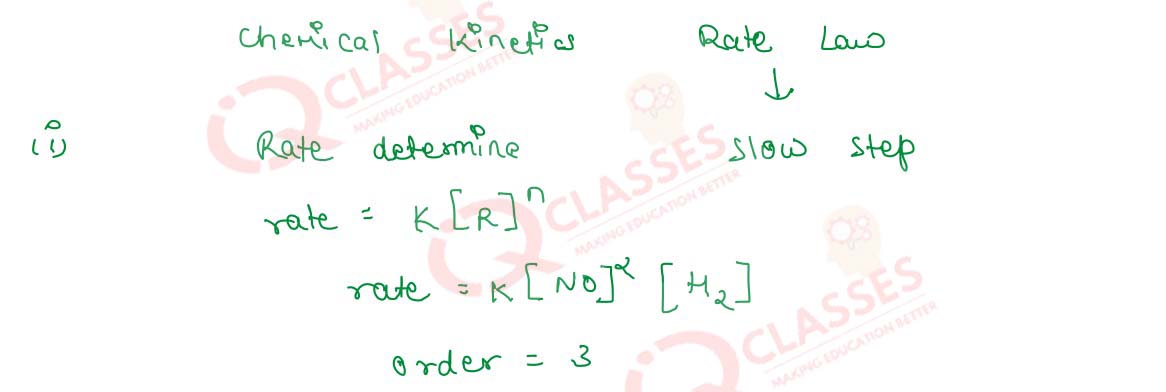 Chemical Kinetics Rate Law
↓
(i) Rate determine slow step
rate = K[R]ⁿ
rate = K[NO]² [H₂]
order = 3
IQ CLASSES
MAKING EDUCATION BETTER
IQ CLASSES
MAKING EDUCATION BETTER
IQ CLASSES
MAKING EDUCATION BETTER